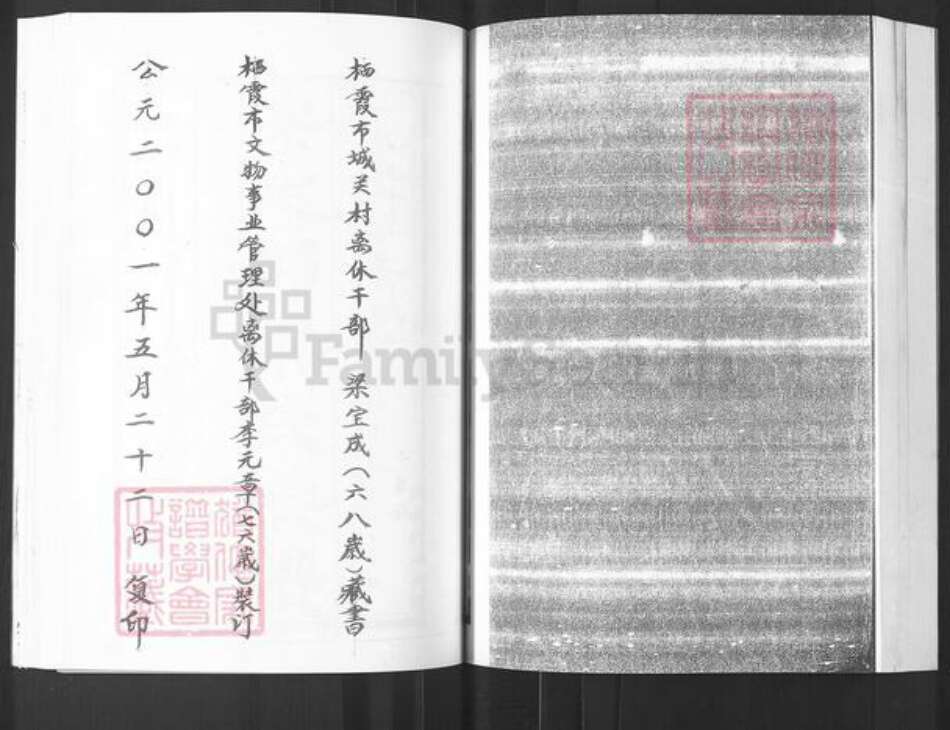 栖霞市城关村离休干部 梁宝成（六八歲）藏書
栖霞市文物事业管理处离休干部李元章（七六歲）裝订
公元二〇〇一年五月二十二日 复印
譜學會
FamilySearch